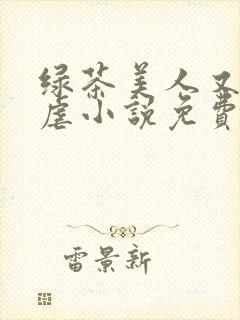 绿茶美人又
虐小説免費
雷景新